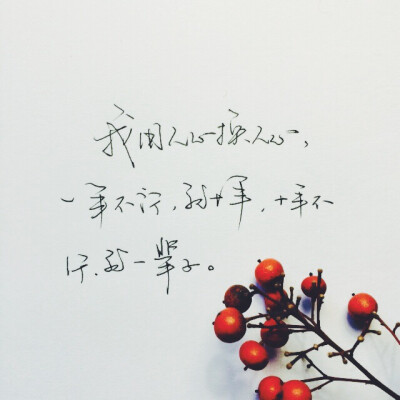 我用人心换人心,
一年不行,就十年,十年不
行,就一辈子。